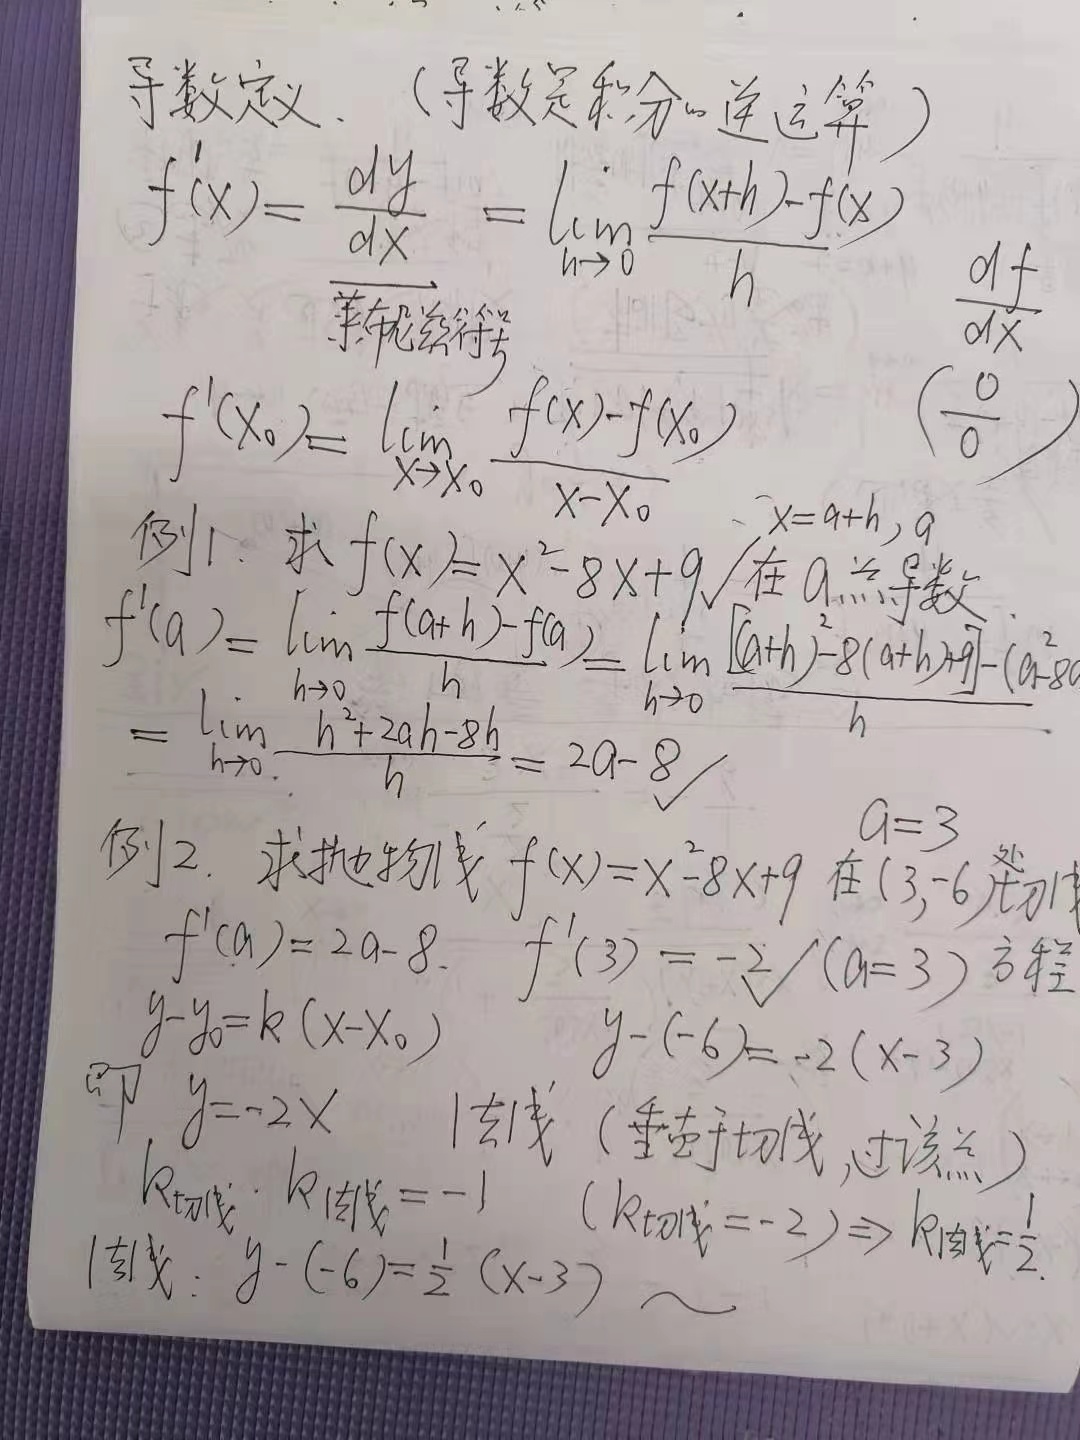 导数定义. (导数是积分的逆运算)
f'(x) = dy/dx = lim h→0 (f(x+h)-f(x))/h
莱布尼兹符号
df/dx
(0/0)
f'(x₀) = lim x→x₀ (f(x)-f(x₀))/(x-x₀)
x=a+h, a
例1. 求 f(x)=x²-8x+9 ✓ 在a点导数.
f'(a) = lim h→0 (f(a+h)-f(a))/h = lim h→0 ([(a+h)²-8(a+h)+9]-(a²-8a)/h
= lim h→0 (h²+2ah-8h)/h = 2a-8 ✓
a=3
例2. 求抛物线 f(x)=x²-8x+9 在(3,-6)处切线
f'(a)=2a-8. f'(3) = -2 ✓ (a=3) 方程
y-y₀=k(x-x₀) y-(-6)=-2(x-3)
即 y=-2x 法线 (垂直于切线,过该点)
k切线·k法线=-1 (k切线=-2)⇒k法线=1/2.
法线: y-(-6)=1/2(x-3)